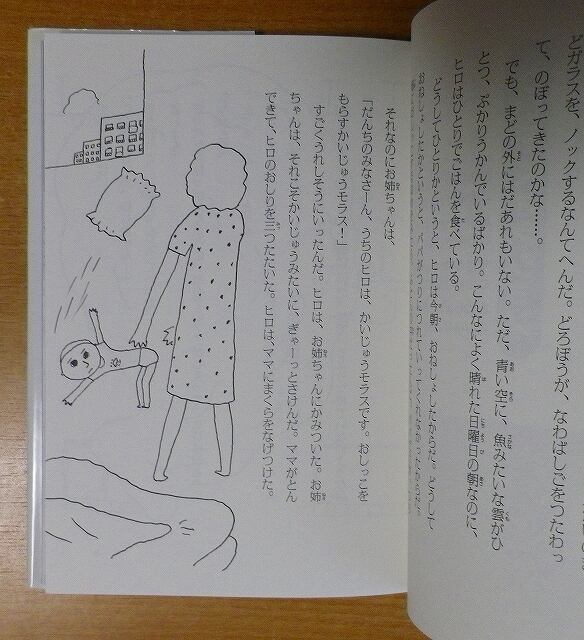 どガラスを、ノックするなんてへんだ。どろぼうが、なわばしごをつたわっ
て、のぼってきたのかな……。
でも、まどの外にはだあれもいない。ただ、青い空に、魚みたいな雲がひ
とつ、ぷかりうかんでいるばかり。こんなによく晴れた日曜日の朝なのに、
ヒロはひとりでごはんを食べている。
どうしてひとりかというと、ヒロは今朝、おねしょしたからだ。どうして
おねしょしたかというと、
それなのにお姉ちゃんは、
「だんちのみなさーん、うちのヒロは、かいじゅうモラスです。おしっこを
もらすかいじゅうモラス！」
すごくうれしそうにいったんだ。ヒロは、お姉ちゃんにかみついた。お姉
ちゃんは、それこそかいじゅうみたいに、ぎゃーっとさけんだ。ママがとん
できて、ヒロのおしりを三つたたいた。ヒロは、ママにまくらをなげつけた。